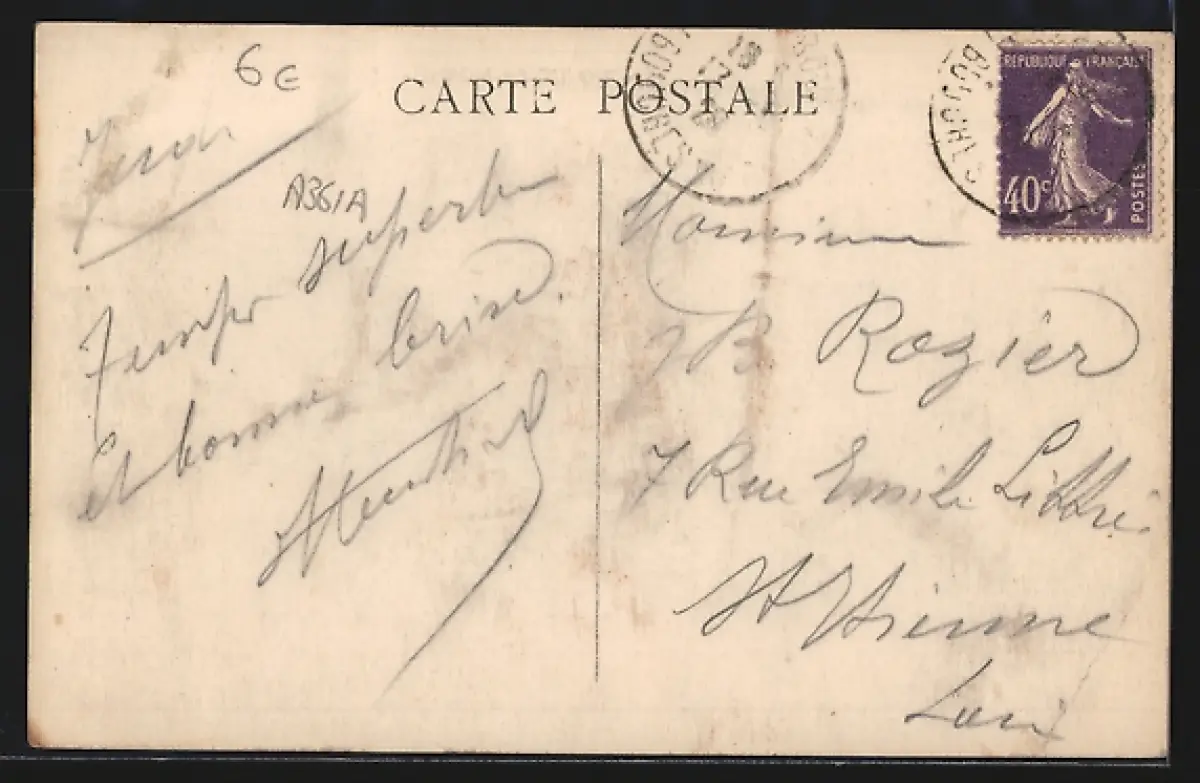 6 €
CARTE POSTALE
A361A
superbe
et bonne brise.
Monsieur
JB Rozier
7 Rue Emile Littré
St Etienne
Loire
REPUBLIQUE FRANÇAISE
40c
POSTES